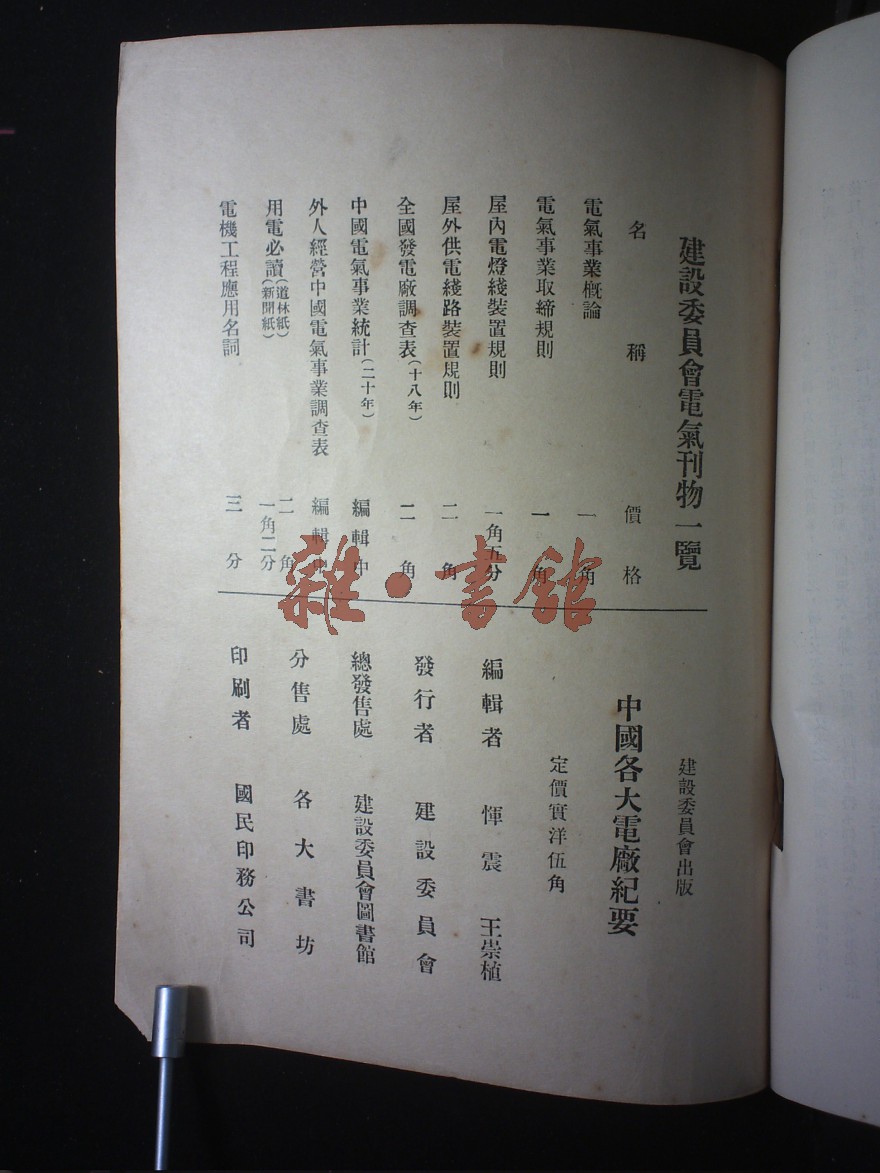 建設委員會電氣刊物一覽
名稱 價格
電氣事業概論 一角
電氣事業取締規則 一角
屋內電燈綫裝置規則 一角五分
屋外供電綫路裝置規則 二角
全國發電廠調查表(十八年) 二角
中國電氣事業統計(二十年) 編輯中
外人經營中國電氣事業調查表 編輯中
用電必讀(道林紙) 二角
(新聞紙) 一角二分
電機工程應用名詞 三分
建設委員會出版
中國各大電廠紀要
定價實洋伍角
編輯者 惲震 王崇植
發行者 建設委員會
總發售處 建設委員會圖書館
分售處 各大書坊
印刷者 國民印務公司
雜·書館